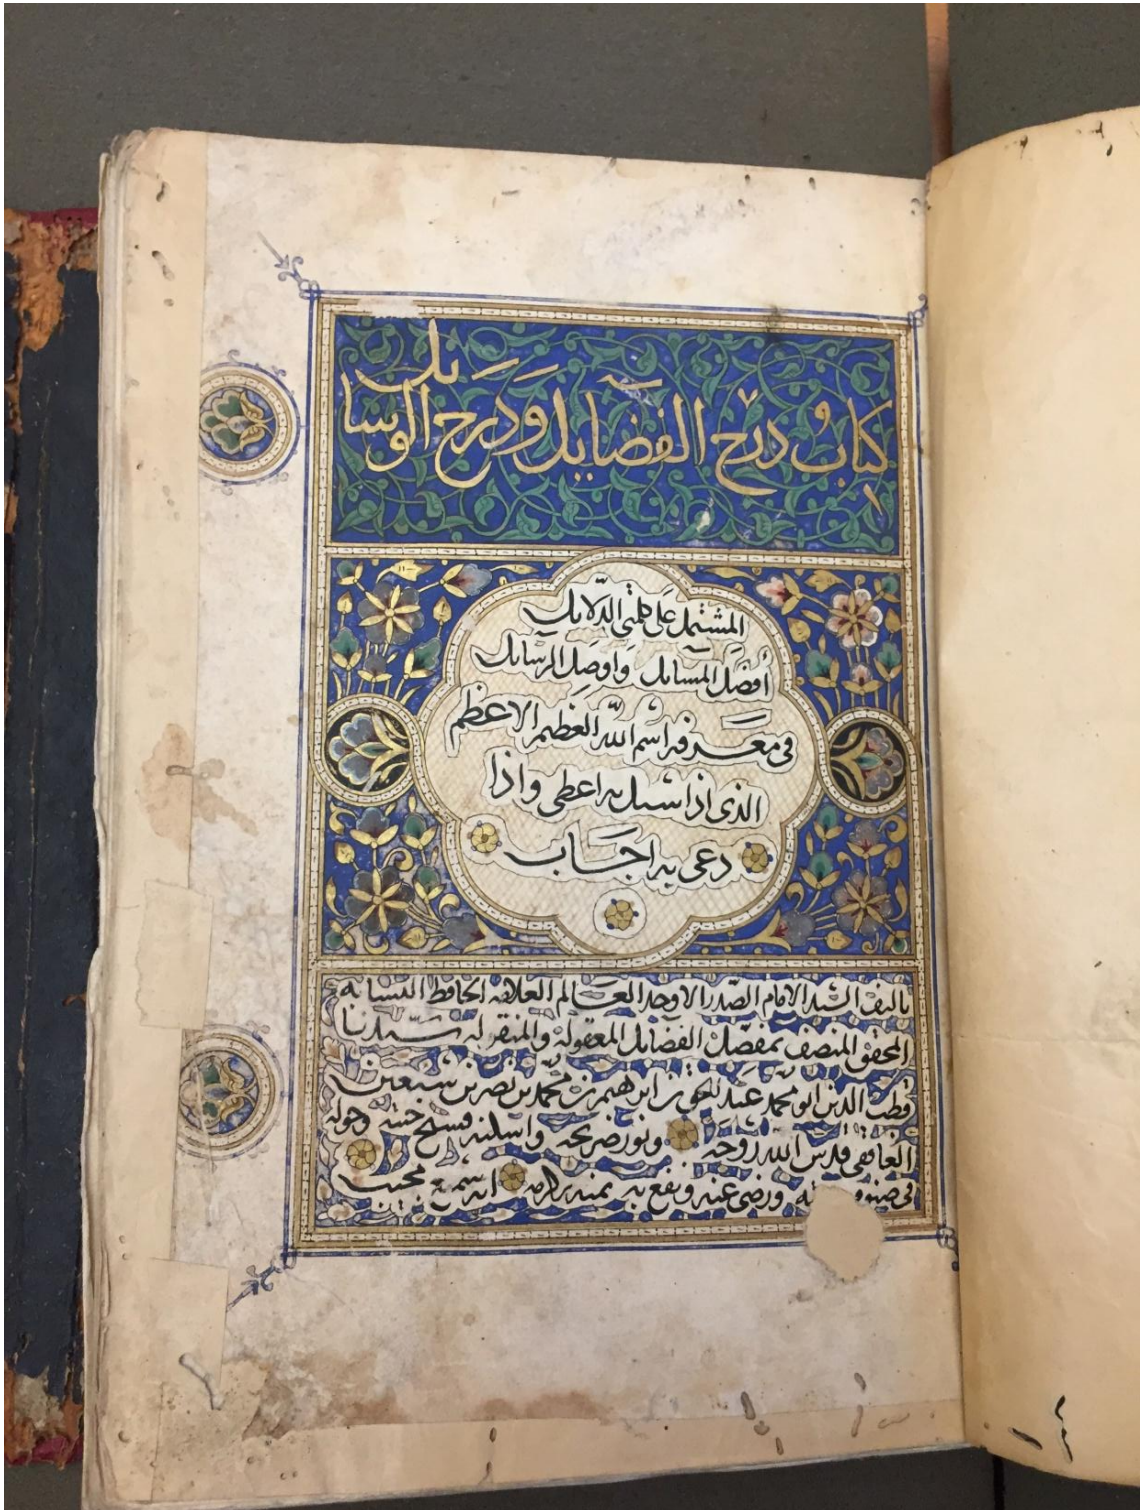 كتاب درج الفضايل ودرج الوسايل
المشتمل على كلمتي الدلايل
أفضل المسايل واوصل الرسايل
في معرفة اسم الله العظيم الاعظم
الذي اذا سيل به اعطى واذا
دعي به اجاب
تاليف الشيخ الامام الصدر الاوحد العالم العلامة الحافظ النسابه
المحقق المنصف بمفصل الفضايل المعقولة والمنقولة سيدنا
قطب الدين ابو محمد عبد الحق بن ابرهيم بن محمد بن نصر بن سبعين
الغافقي قدس الله روحه ونور ضريحه واسكنه فسيح جنته
ورضى عنه ونفع به بمنه وكرمه انه سميع مجيب